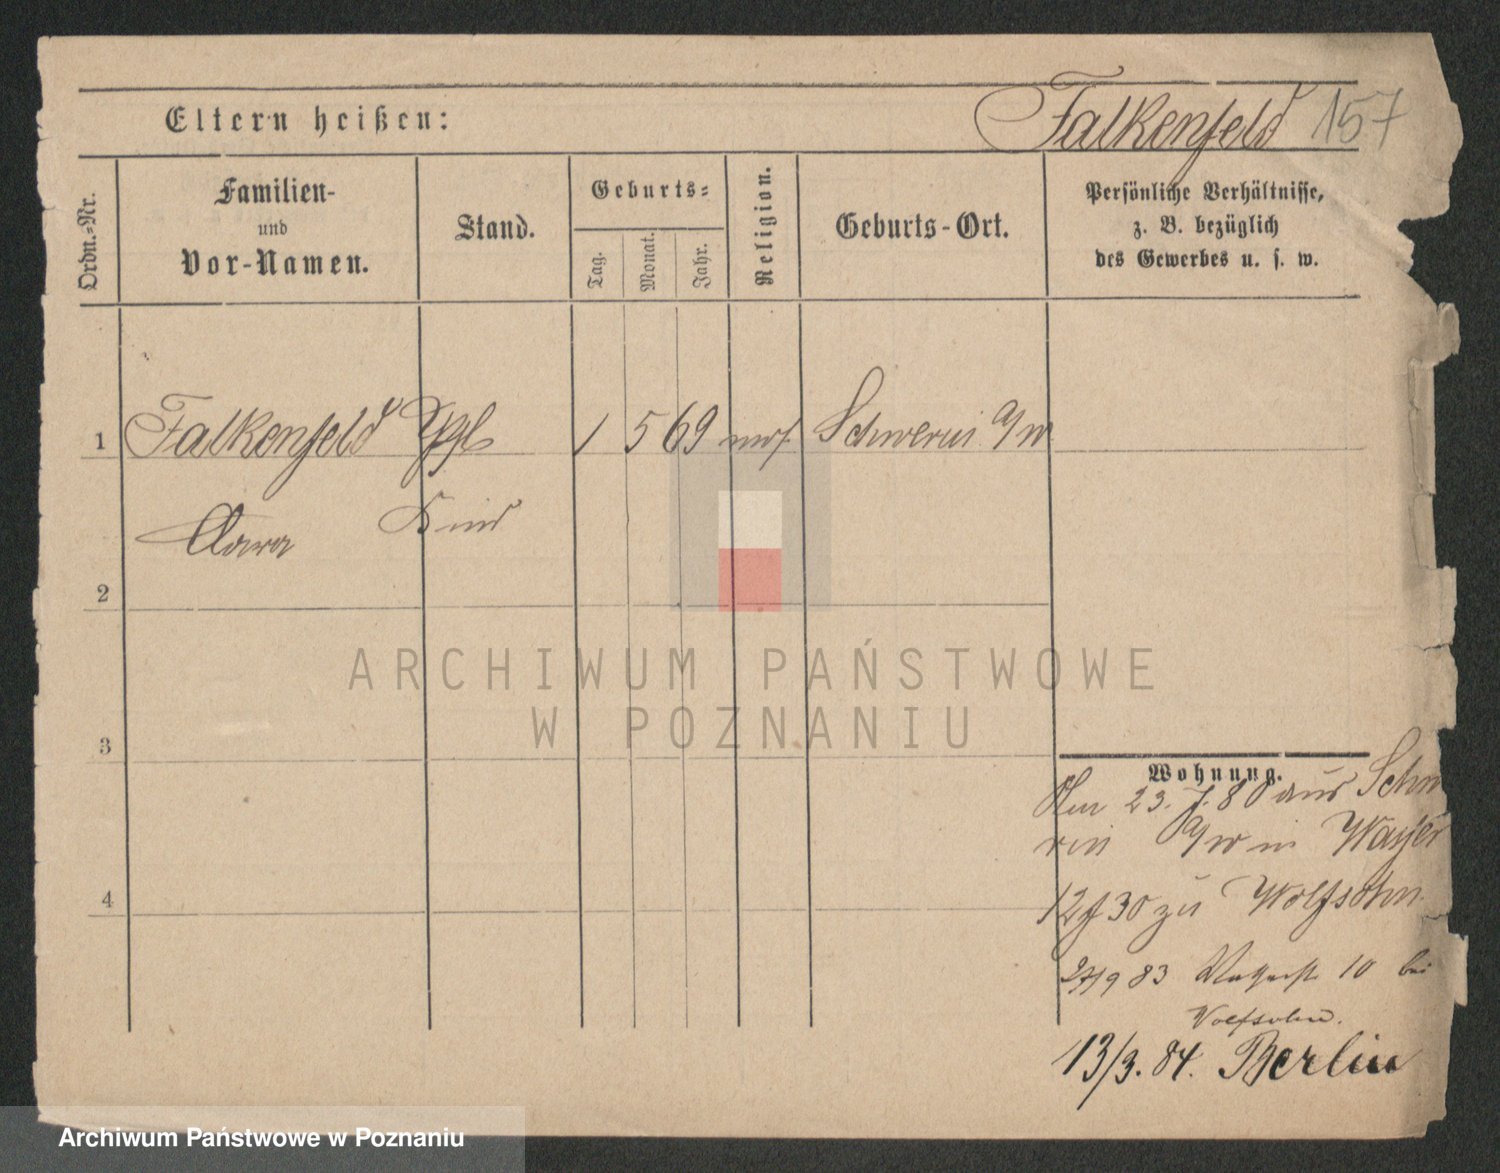 Eltern heißen:
Falkenfeld 157
Ordn.-Nr.
Familien-
und
Vor-Namen.
Stand.
Geburts-
Tag.
Monat.
Jahr.
Religion.
Geburts-Ort.
Persönliche Verhältnisse,
z. B. bezüglich
des Gewerbes u. s. w.
1 Falkenfeld 1 5 69 mos. Schwerin a/w
Clara Kind
2
3
4
Wohnung.
23. 7. 80 aus Schwe
rin a/w in
12 J 30 zu Wolfsohn
27/9 83 10 bei
Wolfsohn.
13/3. 84. Berlin
ARCHIWUM PAŃSTWOWE
W POZNANIU
Archiwum Państwowe w Poznaniu